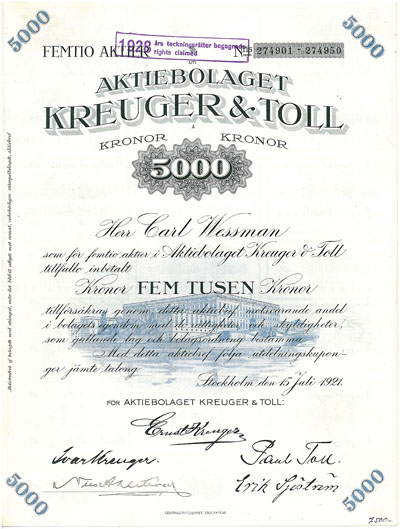 5000
5000
1928 års teckningsrätter begagnade
rights claimed
FEMTIO AKTIER
Nos 274901 - 274950
om
AKTIEBOLAGET
KREUGER & TOLL
à
KRONOR KRONOR
5000
Herr Carl Wessman
som för femtio aktier i Aktiebolaget Kreuger & Toll
tillfullo inbetalt
Kronor FEM TUSEN Kronor
tillförsäkras genom detta aktiebref motsvarande andel
i bolagets egendom med de rättigheter och skyldigheter,
som gällande lag och bolagsordning bestämma.
Med detta aktiebref följa utdelningskupon-
ger jämte talong.
Stockholm den 15 Juli 1921.
FÖR AKTIEBOLAGET KREUGER & TOLL:
Ernst Kreuger
Ivar Kreuger.
Paul Toll.
Erik Sjöström
5000
5000
CENTRALTRYCKERIET, STOCKHOLM
7.500:-